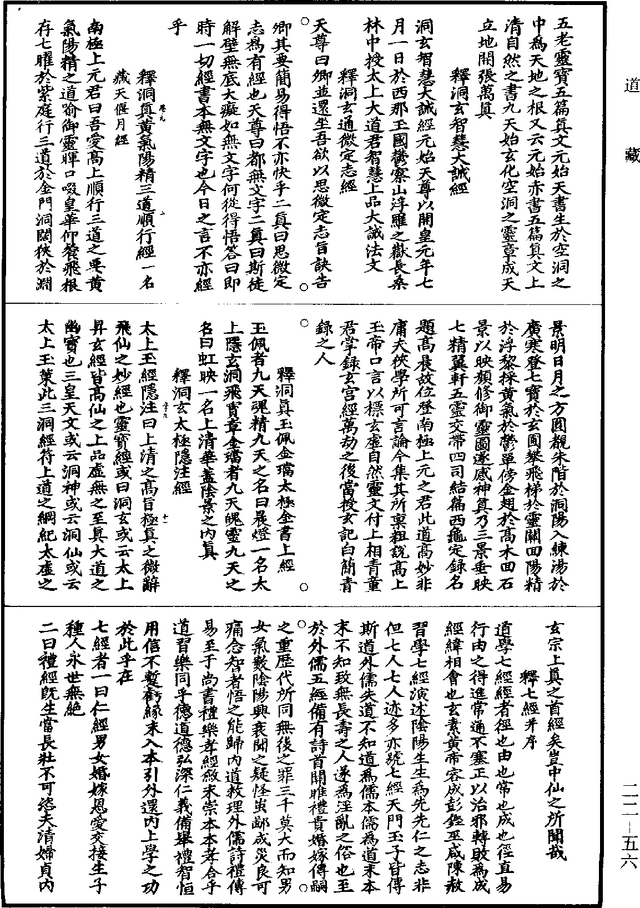 道藏
五老靈寶五篇真文元始天書生於空洞之
中為天地之根又云元始赤書五篇真文上
清自然之書九天始玄化空洞之靈章成天
立地開張萬真
釋洞玄智慧大誡經
洞玄智慧大誡經元始天尊以開皇元年七
月一日於西那玉國鬱察山浮羅之嶽長桑
林中授太上大道君智慧上品大誡法文
釋洞玄通微定志經
天尊曰卿並還坐吾欲以思微定志旨訣告
卿其要簡易得悟不亦快乎二真曰思微定
志為有經也天尊曰都無文字二真曰斯徒
解壁無底大癡如無文字何從得悟答曰即
時一切經書本無文字也今日之言不亦經
乎
釋洞真黃氣陽精三道順行經一名
藏天偃月經
南極上元君曰吾受高上順行三道之要黃
氣陽精之道喻御靈暉口啜皇華仰餐飛根
存七曜於紫庭行三道於金門洞闚俠於淵
景明日月之方圓觀朱階於洞陽入練湯於
廣寒登七寶於玄圃攀飛梯於靈關回陽精
於浮黎採黃氣於鬱單傍金翅於高木回石
景以映顏修御靈圖遂感神真乃三景垂映
七精翼軒五靈交帶四司結篇西龜定錄名
題高晨故位登南極上元之君此道高妙非
庸夫俠學所可言論今集其所稟粗說高上
玉帝口言以標玄虛自然靈文付上相青童
君掌錄玄宮經萬劫之後當授玄記白簡青
錄之人
釋洞真玉佩金璫太極金書上經
玉佩者九天魂精九天之名曰晨燈一名太
上隱玄洞飛寶章金璫者九天魄靈九天之
名曰虹映一名上清華蓋陰景之內真
釋洞玄太極隱注經
太上玉經隱注曰上清之高旨極真之微辭
飛仙之妙經也靈寶經或曰洞玄或云太上
昇玄經皆高仙之上品虛無之至真大道之
幽寶也三皇天文或云洞神或云洞仙或云
太上玉策此三洞經符上道之綱紀太虛之
玄宗上真之首經矣豈中仙之所聞哉
釋七經并序
道學七經經者徑也由也常也成也徑直易
行由之得進常通不塞正以治邪轉敗為成
經緯相會也玄素黃帝容成彭鏗巫咸陳赦
習學七經演述陰陽生生為先先仁之志非
但七人七人迹多亦號七經天門玉子皆傳
斯道外儒失道不知道為儒本儒為道末本
末不知致無長壽之人遂為淫亂之俗也至
於外儒五經備有詩首關雎禮貴婚嫁傳嗣
之重歷代所同無後之罪三千莫大而知男
女氣數陰陽興衰闇之疑怪蚩鄙成災良可
痛念智者悟之能歸內道救理外儒詩禮傳
易至于尚書禮樂孝經敘末崇本本孝合乎
道習樂同乎德道德弘深仁義備舉禮智恒
用信不暫虧緣末入本引外還內上學之功
於此乎在
七經者一曰仁經男女婚嫁恩愛交接生子
種人永世無絕
二曰禮經既生當長壯不可恣夫清婦貞內
二二－五六